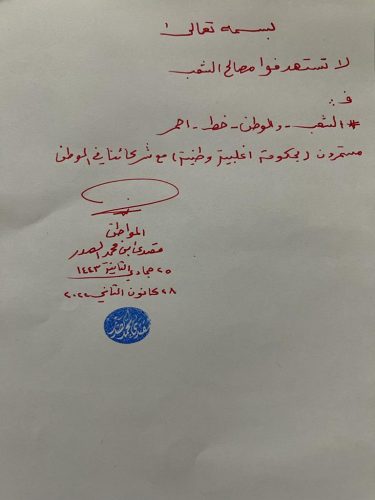 بسمه تعالى
لا تستهدفوا مصالح الشعب
فـ:
#الشعب-والوطن-خط-احمر
مستمرون (لحكومة اغلبية وطنية) مع شركائنا في الوطن
المواطن
مقتدى ابن محمد الصدر
٢٥ جمادي الثانية ١٤٤٣
٢٨ كانون الثاني ٢٠٢٢